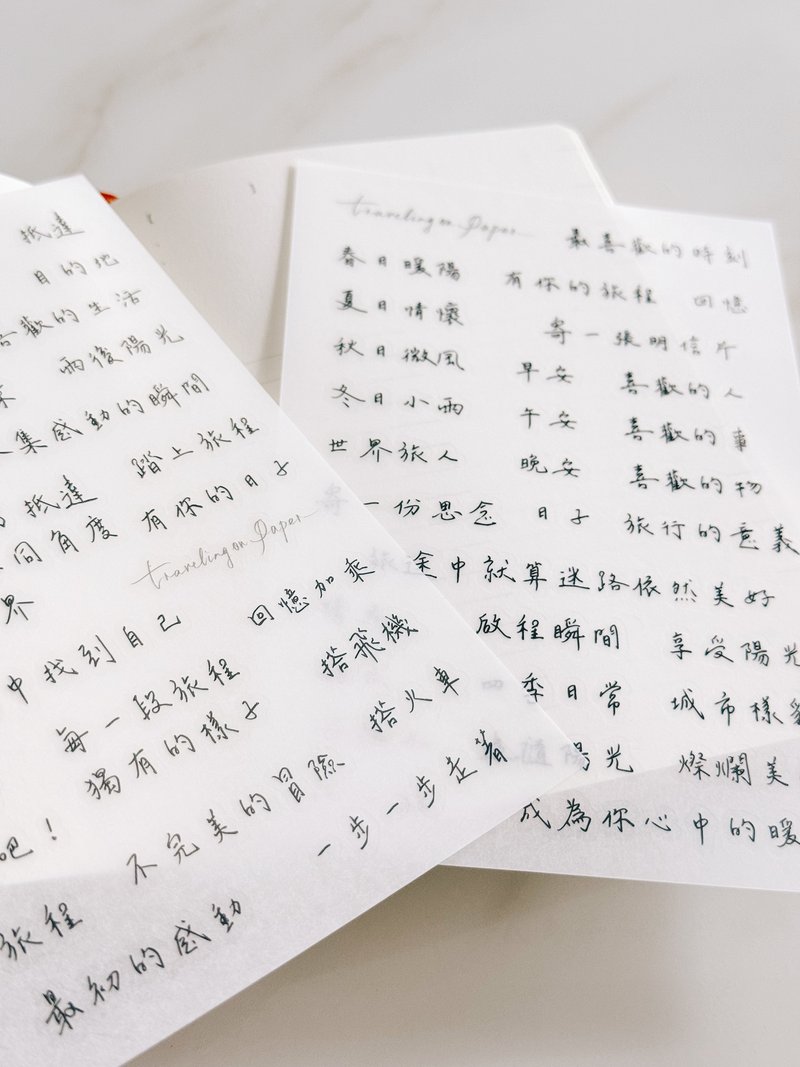 抵達
目的地
喜歡的生活
雨後陽光
集感動的瞬間
抵達 踏上旅程
同角度 有你的日子
travelingonpaper
界
中找到自己 回憶加乘
每一段旅程 搭飛機
獨有的樣子 搭火車
吧！ 不完美的冒險 一步一步走著
旅程
最初的感動
travelingonpaper 最喜歡的時刻
春日暖陽 有你的旅程 回憶
夏日情懷 寄一張明信片
秋日微風 早安 喜歡的人
冬日小雨 午安 喜歡的事
世界旅人 晚安 喜歡的物
寄一份思念 日子 旅行的意義
途中就算迷路依然美好
啟程瞬間 享受陽光
季日常 城市樣
光 燦爛美
成為你心中的暖